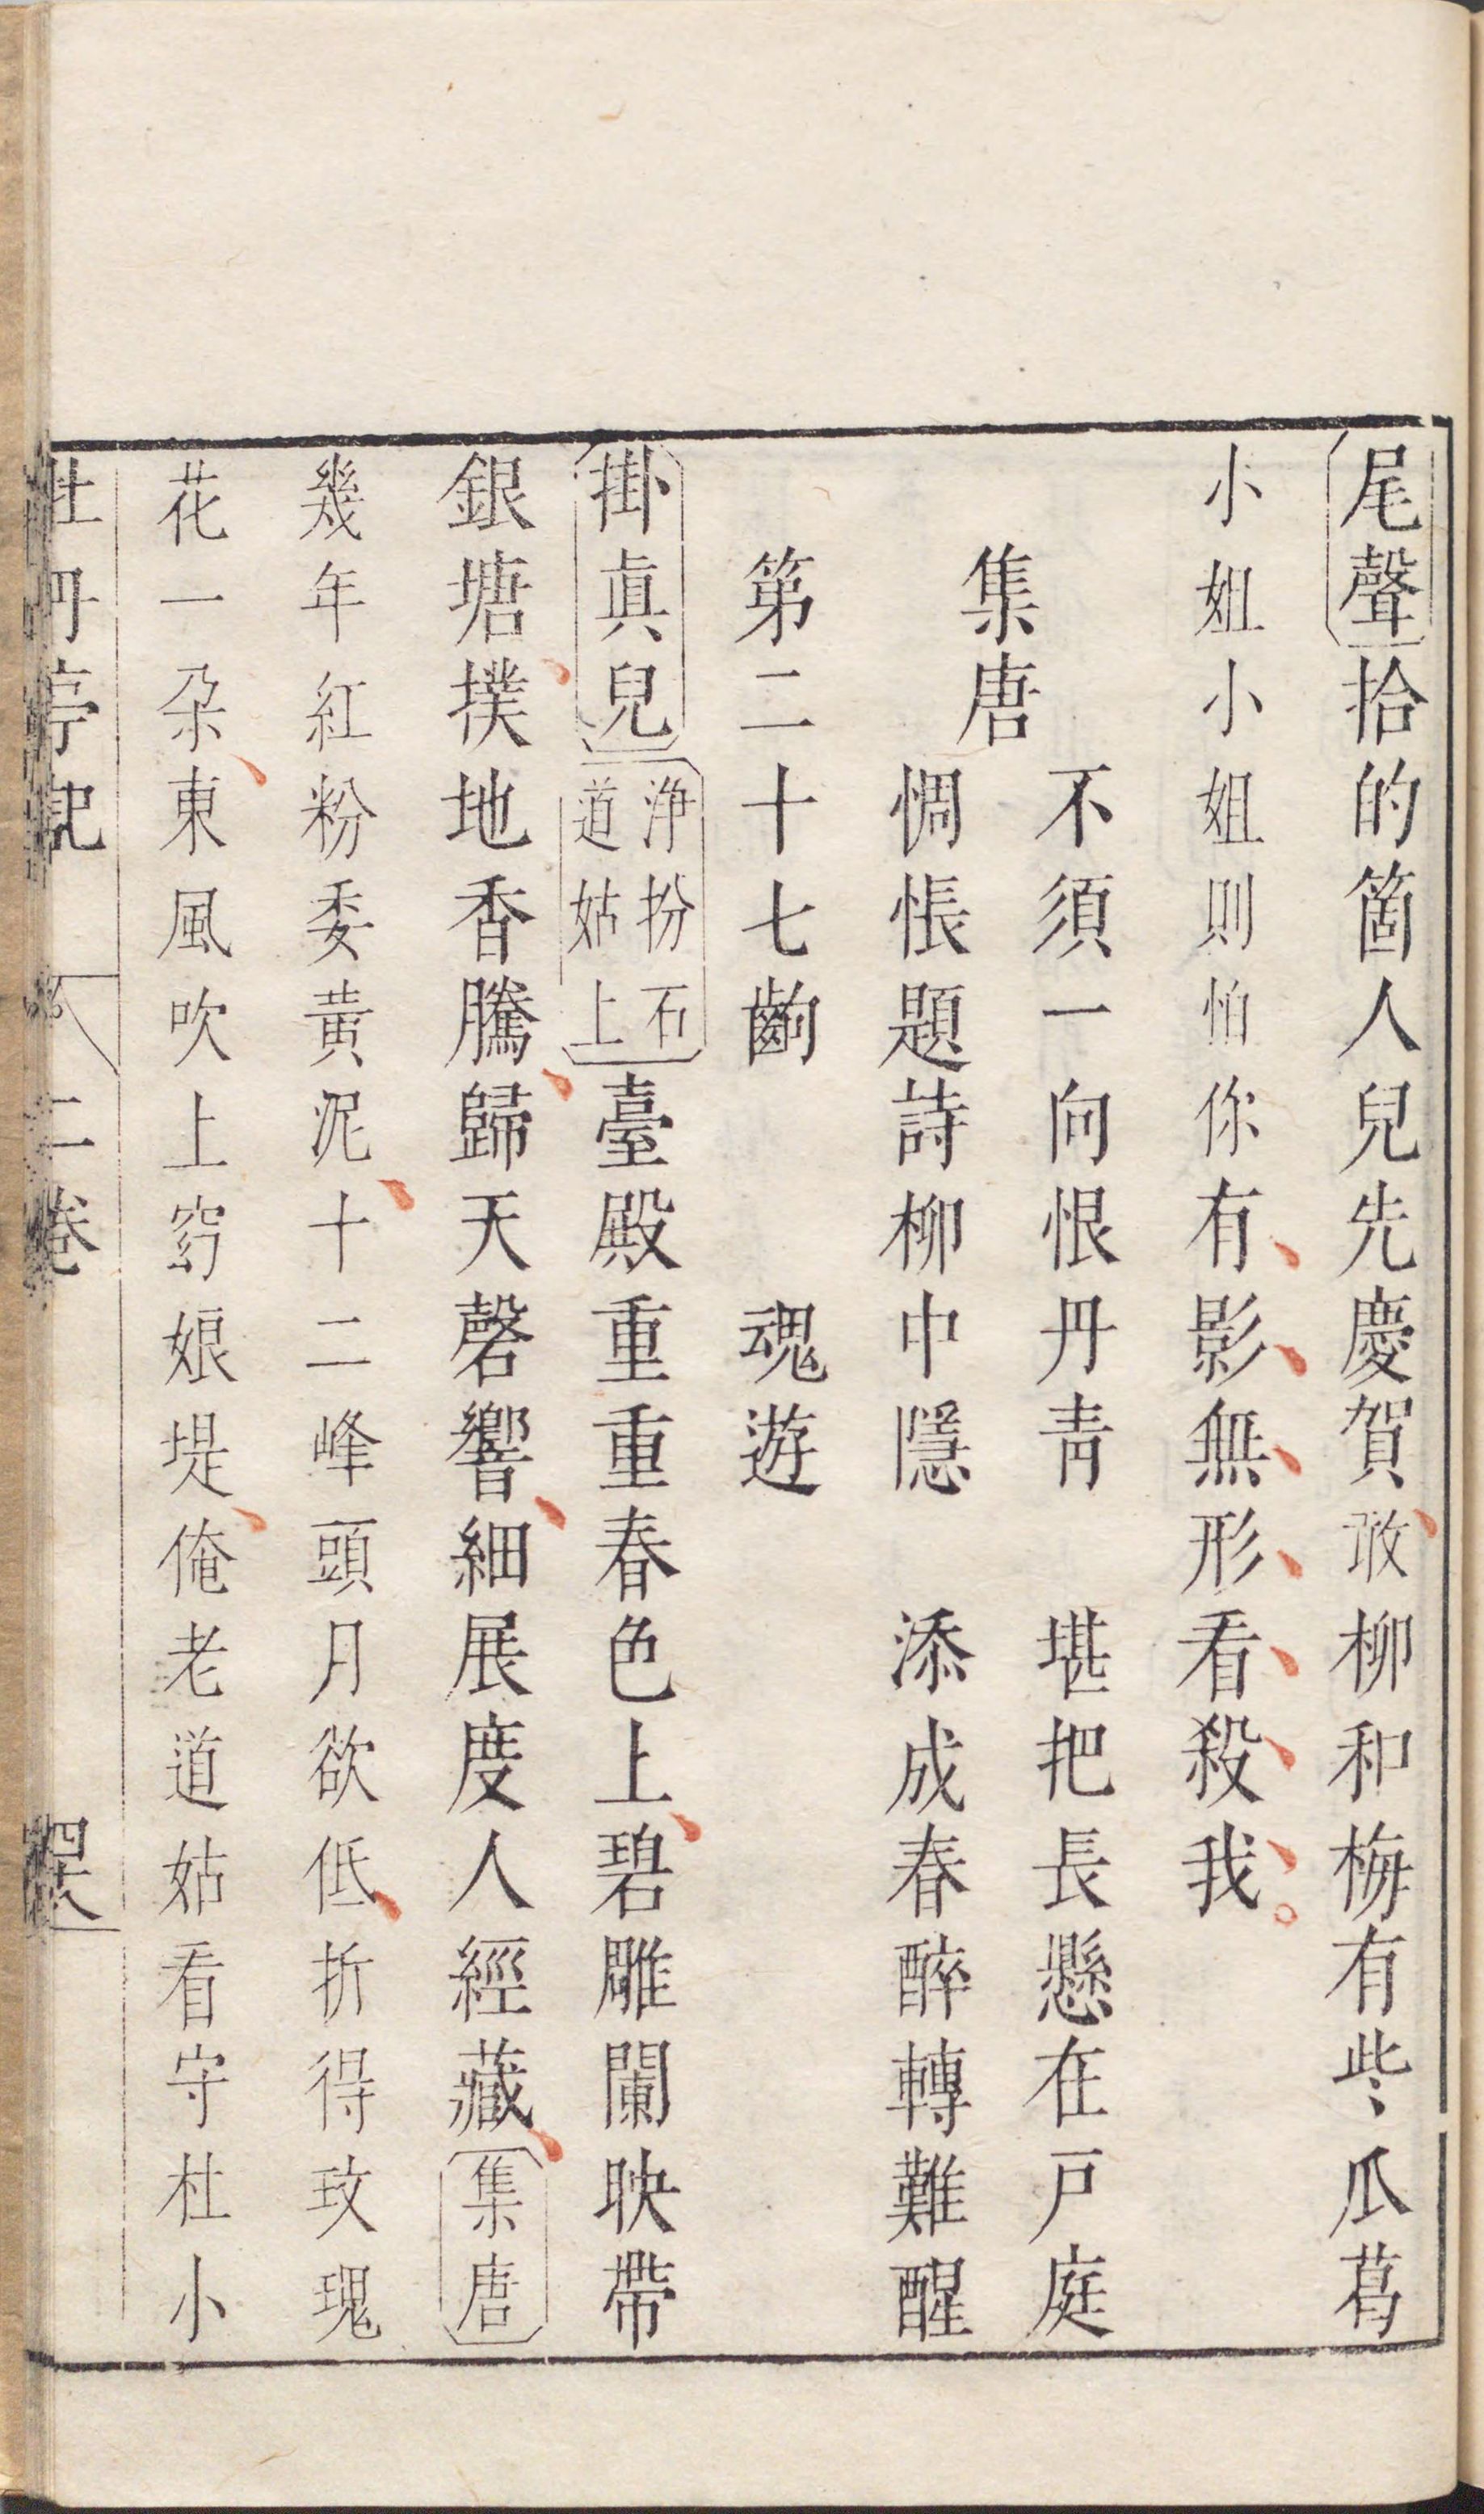 尾聲拾的箇人兒先慶賀敢柳和梅有些瓜葛
小姐小姐則怕你有影無形看殺我
集唐
不須一向恨丹青 堪把長懸在戸庭
惆悵題詩柳中隱 添成春醉轉難醒
第二十七齣 魂遊
掛眞兒淨扮石道姑上臺殿重重春色上碧雕闌映帶
銀塘撲地香騰歸天磬響細展度人經藏集唐
幾年紅粉委黃泥十二峰頭月欲低折得玫瑰
花一朶東風吹上窈娘堤俺老道姑看守杜小
牡丹亭記 二卷